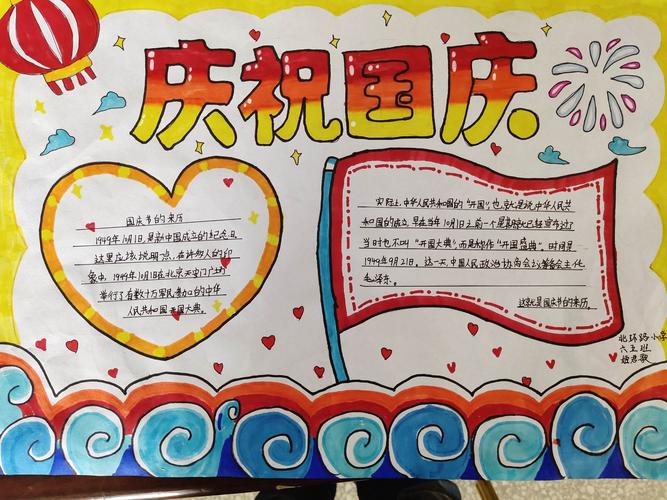 庆祝国庆
国庆节的来历
1949年10月1日,是新中国成立的纪念日.
这里应该说明一点,在许多人的印
象中,1949年10月1日在北京天安门广场
举行了有数十万军民参加的中华
人民共和国开国大典。
实际上,中华人民共和国的“开国”,也就是说,中华人民共
和国的成立,早在当年10月1日之前一个星期就已经宣布过了
当时也不叫“开国大典”,而是称作“开国盛典”。时间是
1949年9月21日。这一天,中国人民政治协商会议筹备会主任
毛泽东。
这就是国庆节的来历。
北环路小学
六五班